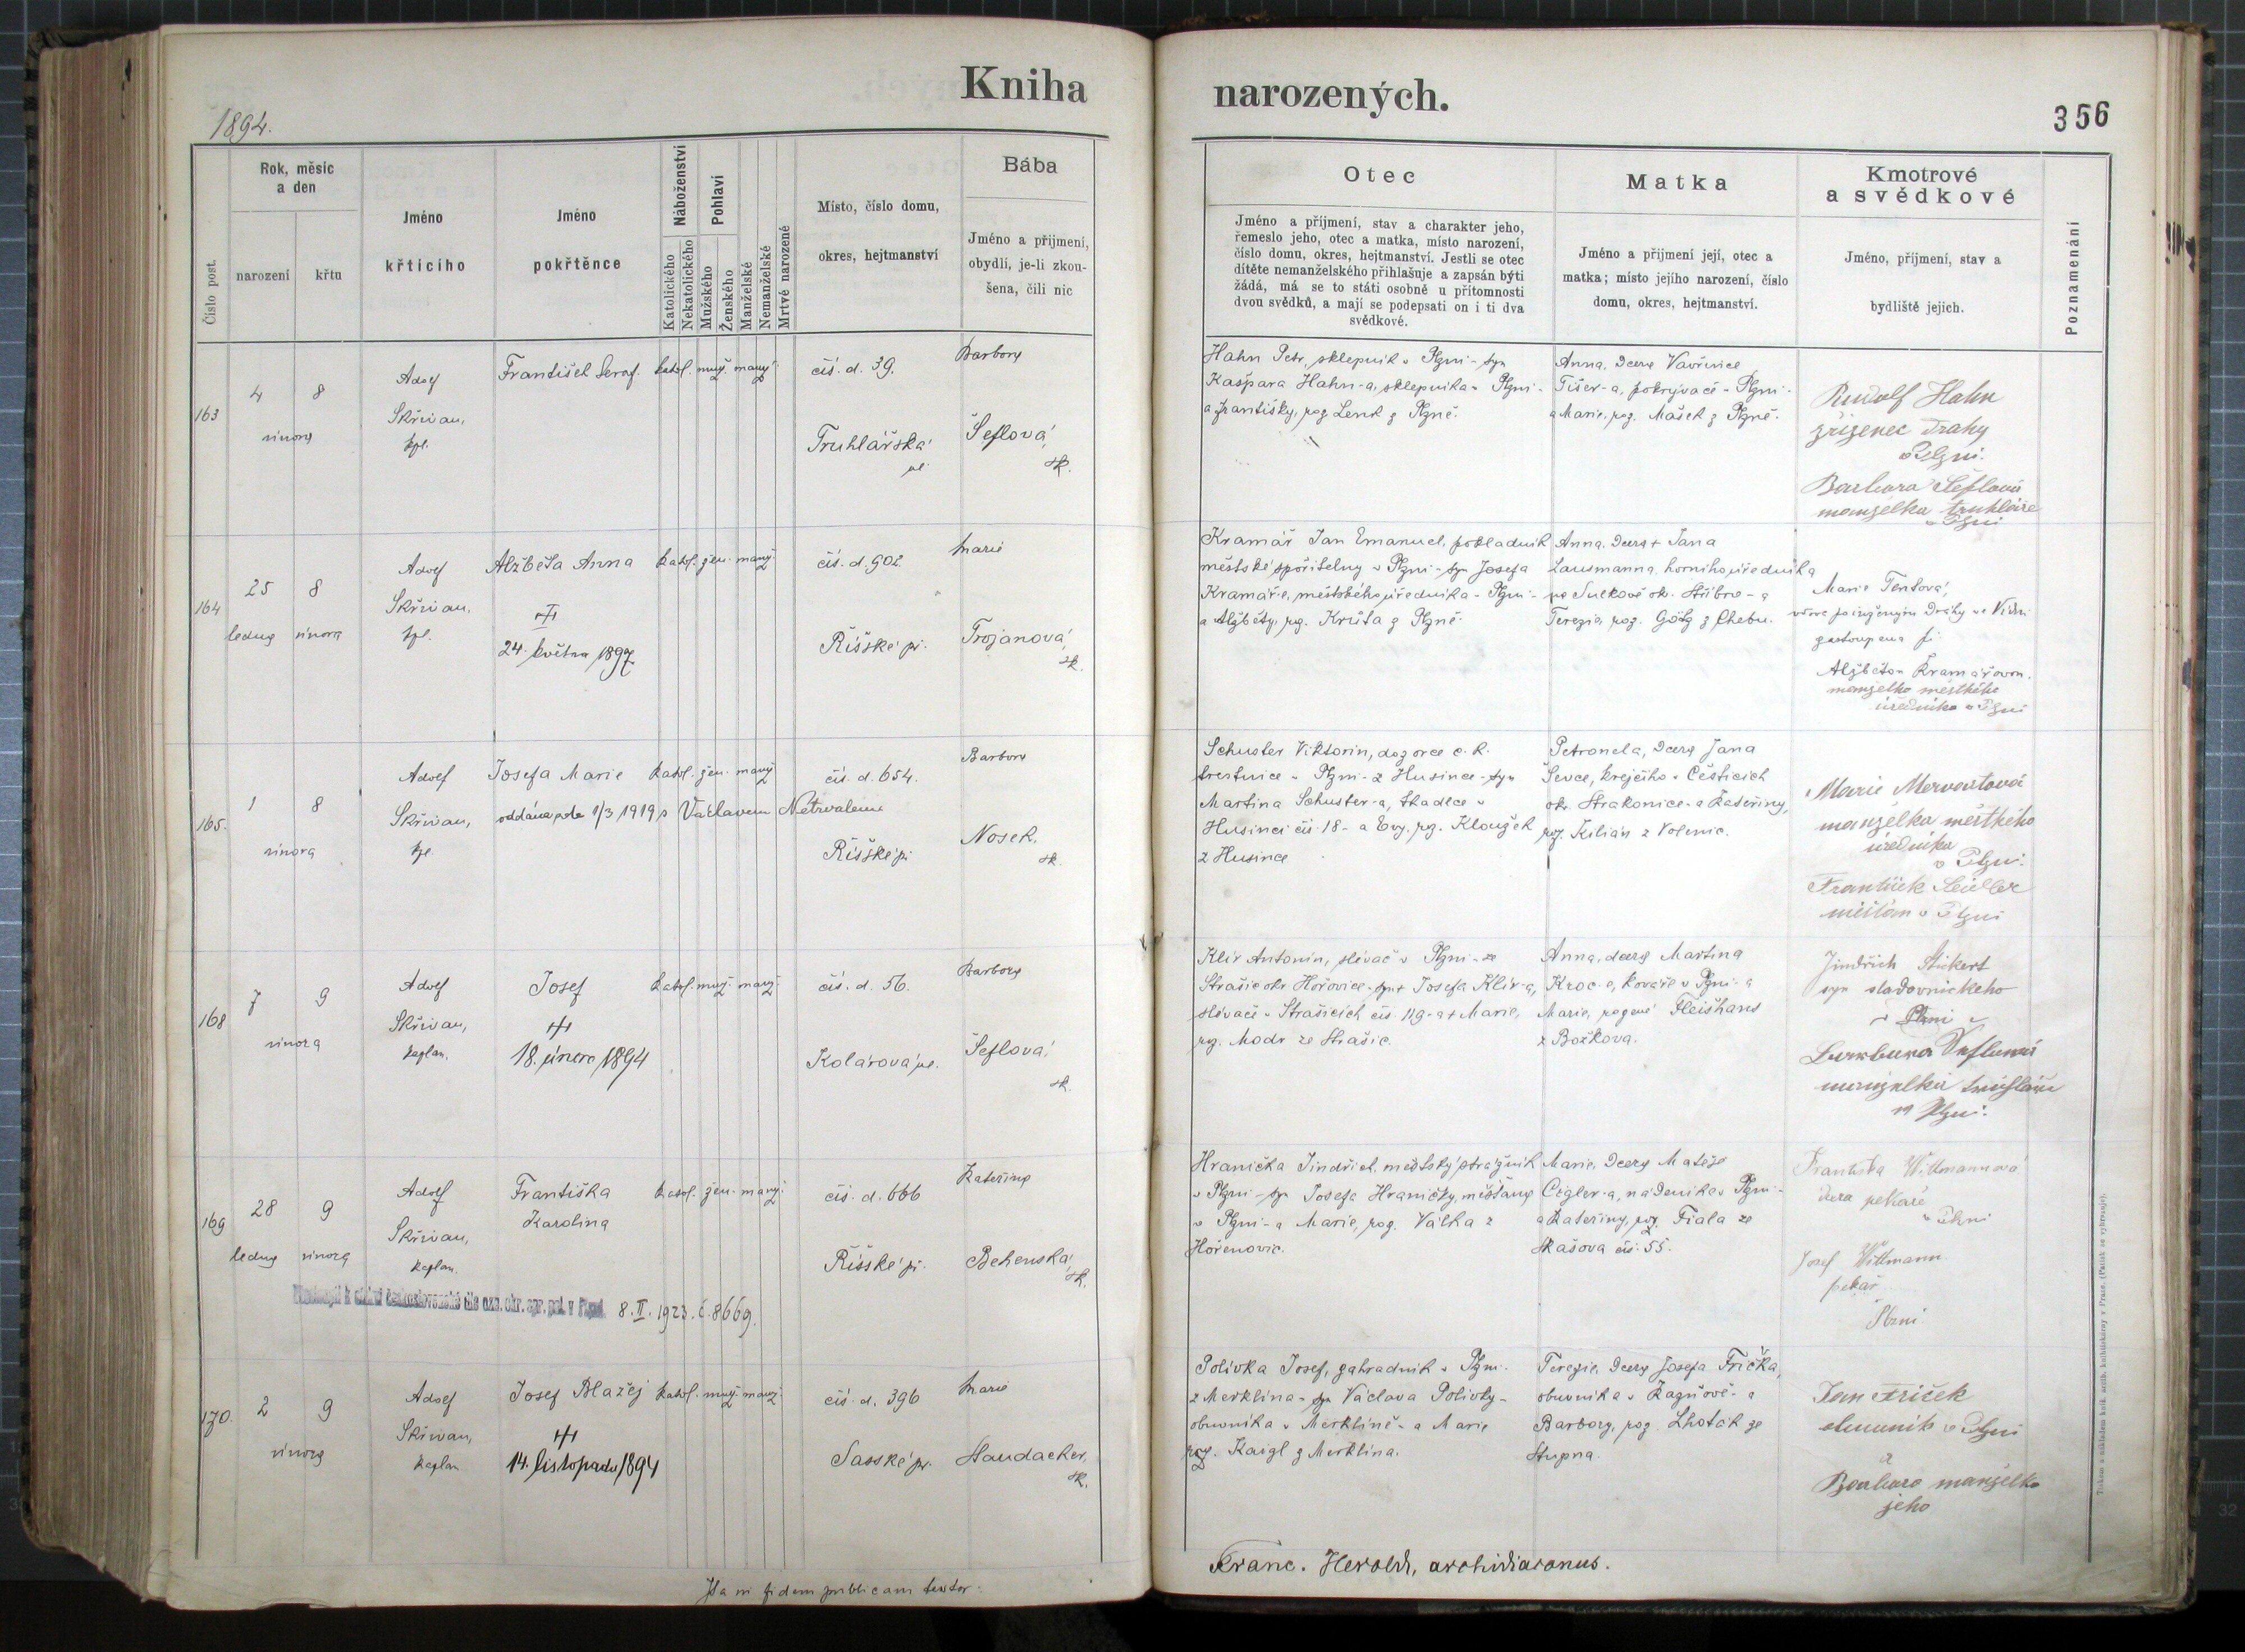 Kniha
narozených.
1894.
356
Číslo post.
Rok, měsíc
a den
narození
křtu
Jméno
křticího
Jméno
pokřtěnce
Náboženství
Katolického
Nekatolického
Pohlaví
Mužského
Ženského
Manželské
Nemanželské
Mrtvé narozené
Místo, číslo domu,
okres, hejtmanství
Bába
Jméno a příjmení,
obydlí, je-li zkou-
šena, čili nic
Otec
Jméno a příjmení, stav a charakter jeho,
řemeslo jeho, otec a matka, místo narození,
číslo domu, okres, hejtmanství. Jestli se otec
dítěte nemanželského přihlašuje a zapsán býti
žádá, má se to státi osobně u přítomnosti
dvou svědků, a mají se podepsati on i ti dva
svědkové.
Matka
Jméno a příjmení její, otec a
matka; místo jejího narození, číslo
domu, okres, hejtmanství.
Kmotrové
a svědkové
Jméno, příjmení, stav a
bydliště jejich.
Poznamenání
163
4
8
února
Adolf
Skřivan,
kpl.
František Seraf.
katol. muž. manž.
čís. d. 39.
Truhlářská
ul.
Barbora
Šeflová,
zk.
Hahn Petr, sklepník v Plzni - syn
Kašpara Hahn-a, sklepníka v Plzni -
a Františky, roz. Lenk z Plzně.
Anna, dcera Vavřince
Tišer-a, pokrývače v Plzni -
a Marie, roz. Mašek z Plzně.
Rudolf Hahn
zřízenec dráhy
v Plzni.
Barbora Šeflová
manželka truhláře
v Plzni
164
25
8
ledna
února
Adolf
Skřivan,
kpl.
Alžběta Anna
24. května 1897
katol. žen. manž.
čís. d. 902
Říšské př.
Marie
Trojanová,
zk.
Kramář Jan Emanuel, pokladník
městské spořitelny v Plzni - syn Josefa
Kramáře, městského úředníka v Plzni -
a Alžběty, roz. Krůta z Plzně.
Anna, dcera + Jana
Lausmanna, horního úředníka
ve Sulkově ok. Stříbro - a
Terezie, roz. Götz z Chebu.
Marie Tentová,
vdova po inženýru dráhy ve Vídni
zastoupena p.
Alžbětou Kramářovou,
manželka městského
úředníka v Plzni
165.
1
8
února
Adolf
Skřivan,
kpl.
Josefa Marie
katol. žen. manž.
oddána zde 1/3 1919 s Václavem Netrvalem
čís. d. 654.
Říšské př.
Barbora
Nosek,
zk.
Schuster Viktorin, dozorce c. k.
trestnice v Plzni - z Husince - syn
Martina Schuster-a, tkadlce v
Husinci čís. 18 - a Evy, roz. Kloužek
z Husince
Petronela, dcera Jana
Ševce, krejčího v Čestících
okr. Strakonice - a Kateřiny,
roz. Kilián z Volenic.
Marie Mervartová
manželka městského
úředníka
v Plzni.
František Seidler
měšťan v Plzni
168
7
9
února
Adolf
Skřivan,
kaplan.
Josef
18. února 1894
katol. muž. manž.
čís. d. 56.
Kolárova ul.
Barbora
Šeflová,
zk.
Klír Antonín, slévač v Plzni - ze
Strašic okr. Hořovice - syn + Josefa Klír-a,
slévače v Strašicích čís. 119 - a + Marie,
roz. Modr ze Strašic.
Anna, dcera Martina
Kroc-e, kováře v Plzni - a
Marie, rozené Fleišhans
z Božkova.
Jindřich Stickert
syn sladovnického
v Plzni
Barbora Šeflová
manželka truhláře
v Plzni.
169
28
9
ledna
února
Adolf
Skřivan,
kaplan.
Františka
Karolina
katol. žen. manž.
8. II. 1923. č. 8669.
čís. d. 666
Říšské př.
Kateřina
Behenská,
zk.
Hranička Jindřich, městský strážník
v Plzni - syn Josefa Hraničky, měšťana
v Plzni - a Marie, roz. Válka z
Hořenovic.
Marie, dcera Matěje
Cígler-a, nádeníka v Plzni -
a Kateřiny, roz. Fiala ze
Skašova čís. 55.
Františka Wittmannová
dcera pekaře
v Plzni
Josef Wittmann
pekař
Plzni
170.
2
9
února
Adolf
Skřivan,
kaplan
Josef Blažej
14. listopadu 1894
katol. muž. manž.
čís. d. 396
Sasské př.
Marie
Haudacher,
zk.
Polívka Josef, zahradník v Plzni -
z Merklína - syn Václava Polívky -
obuvníka v Merklíně - a Marie
roz. Kaigl z Merklína.
Terezie, dcera Josefa Fríčka,
obuvníka v - a
Barbory, roz. Lhoták ze
Stupna.
Jan Fríček
v Plzni
a
Barbora manželka
jeho
Ita in fidem publicam testor:
Franc. Herold, archidiaconus.